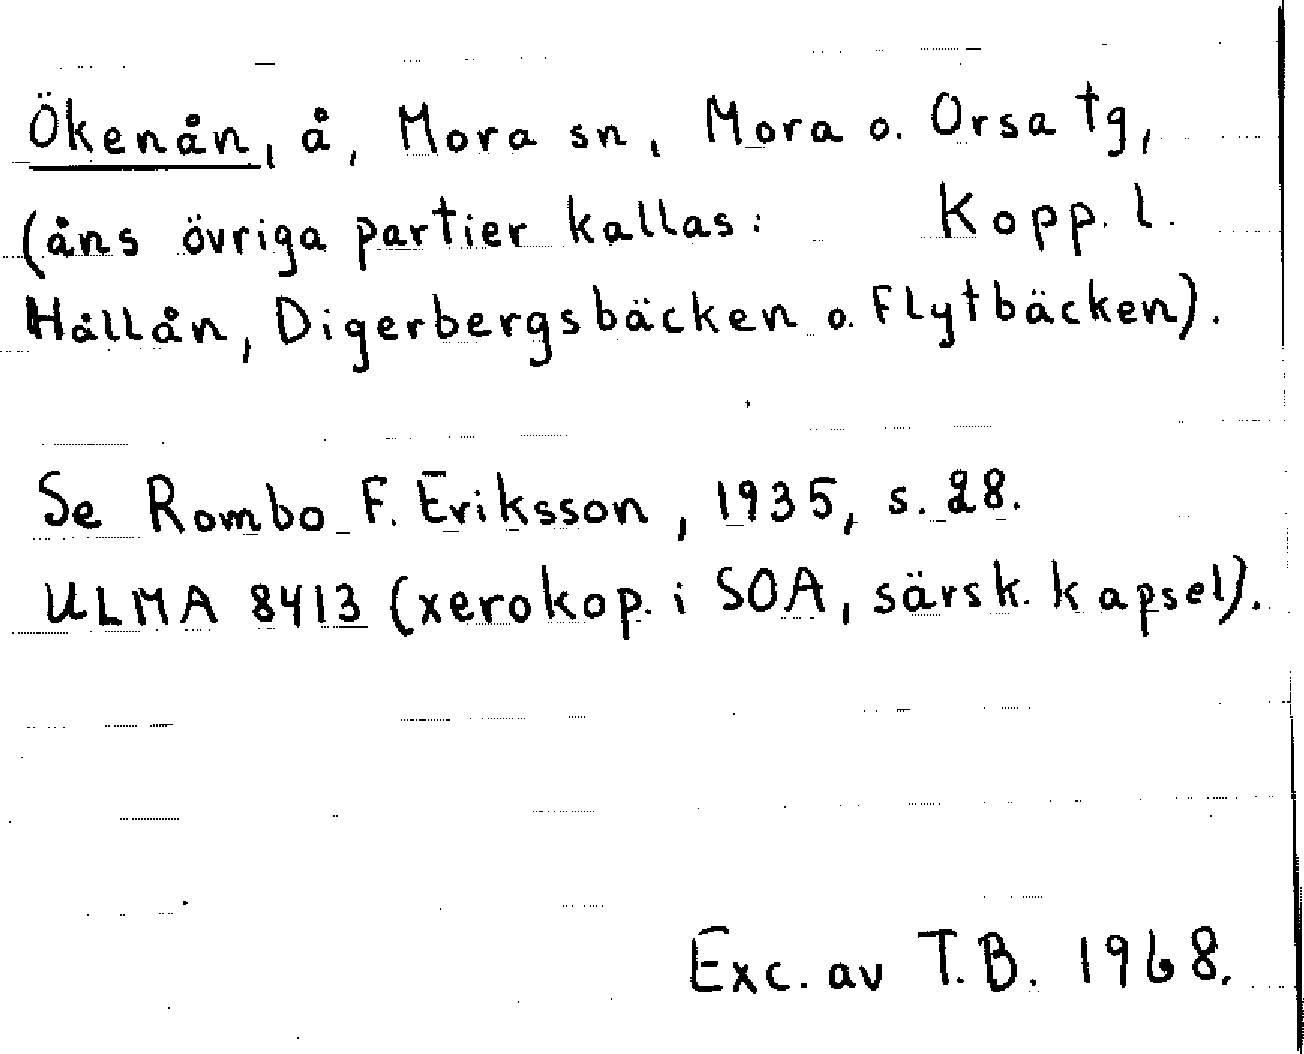 Ökenån, å, Mora sn, Mora o. Orsa tg,
(åns övriga partier kallas: Kopp. l.
Hållån, Digerbergsbäcken o. Flytbäcken).
Se Rombo F. Eriksson, 1935, s. 28.
ULMA 8413 (xerokop. i SOA, särsk. kapsel).
Exc. av T.B. 1968.